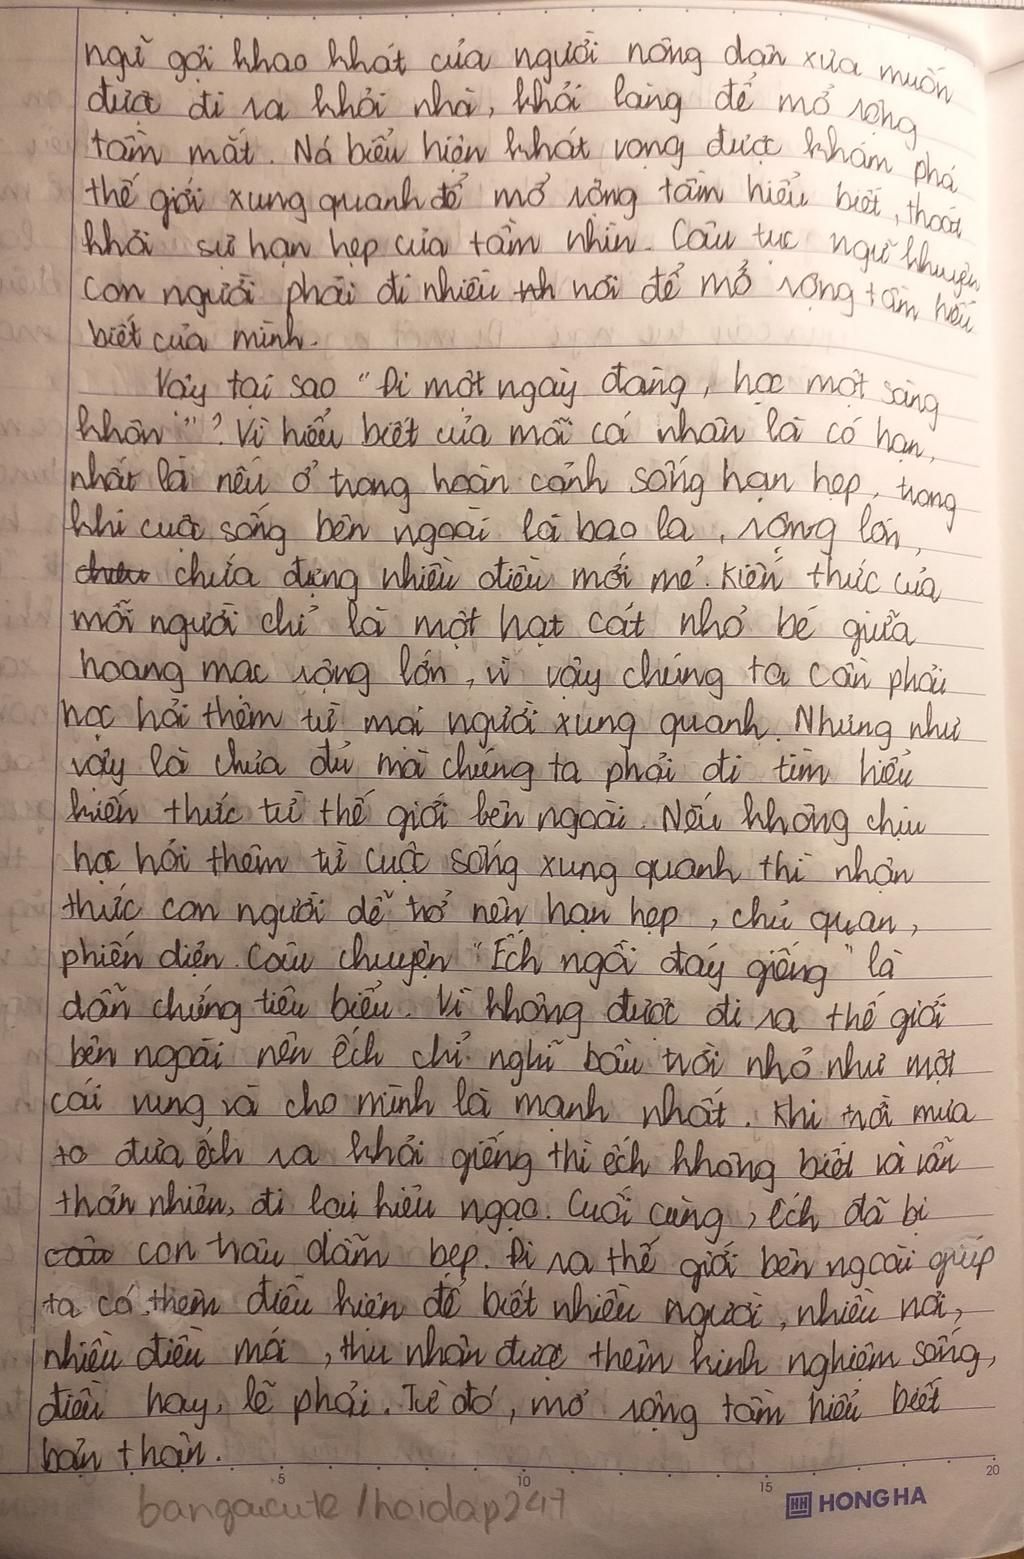 ngữ gợi khao khát của người nông dân xưa muốn
được đi ra khỏi nhà, khỏi làng để mở rộng
tầm mắt. Nó biểu hiện khát vọng được khám phá
thế giới xung quanh để mở rộng tầm hiểu biết, thoát
khỏi sự hạn hẹp của tầm nhìn. Câu tục ngữ khuyên
con người phải đi nhiều nh nơi để mở rộng tầm hiểu
biết của mình.
Vậy tại sao "Đi một ngày đàng, học một sàng
khôn"? Vì hiểu biết của mỗi cá nhân là có hạn,
nhất là nếu ở trong hoàn cảnh sống hạn hẹp, trong
khi cuộc sống bên ngoài là bao la, rộng lớn,
chứa đựng nhiều điều mới mẻ. Kiến thức của
mỗi người chỉ là một hạt cát nhỏ bé giữa
hoang mạc rộng lớn, vì vậy chúng ta cần phải
học hỏi thêm từ mọi người xung quanh. Nhưng như
vậy là chưa đủ mà chúng ta phải đi tìm hiểu
kiến thức từ thế giới bên ngoài. Nếu không chịu
học hỏi thêm từ cuộc sống xung quanh thì nhận
thức con người dễ trở nên hạn hẹp, chủ quan,
phiến diện. Câu chuyện "Ếch ngồi đáy giếng" là
dẫn chứng tiêu biểu. Vì không được đi ra thế giới
bên ngoài nên ếch chỉ nghĩ bầu trời nhỏ như một
cái vung và cho mình là mạnh nhất. Khi trời mưa
to đưa ếch ra khỏi giếng thì ếch không biết và vẫn
thản nhiên, đi lại hiểu ngạo. Cuối cùng, ếch đã bị
con trâu dẫm bẹp. Đi ra thế giới bên ngoài giúp
ta có thêm điều kiện để biết nhiều người, nhiều nơi,
nhiều điều mới, thu nhận được thêm kinh nghiệm sống,
điều hay, lẽ phải. Từ đó, mở rộng tầm hiểu biết
bản thân.
5 10 15 20
bangacute/hoidap247
HH HONG HA